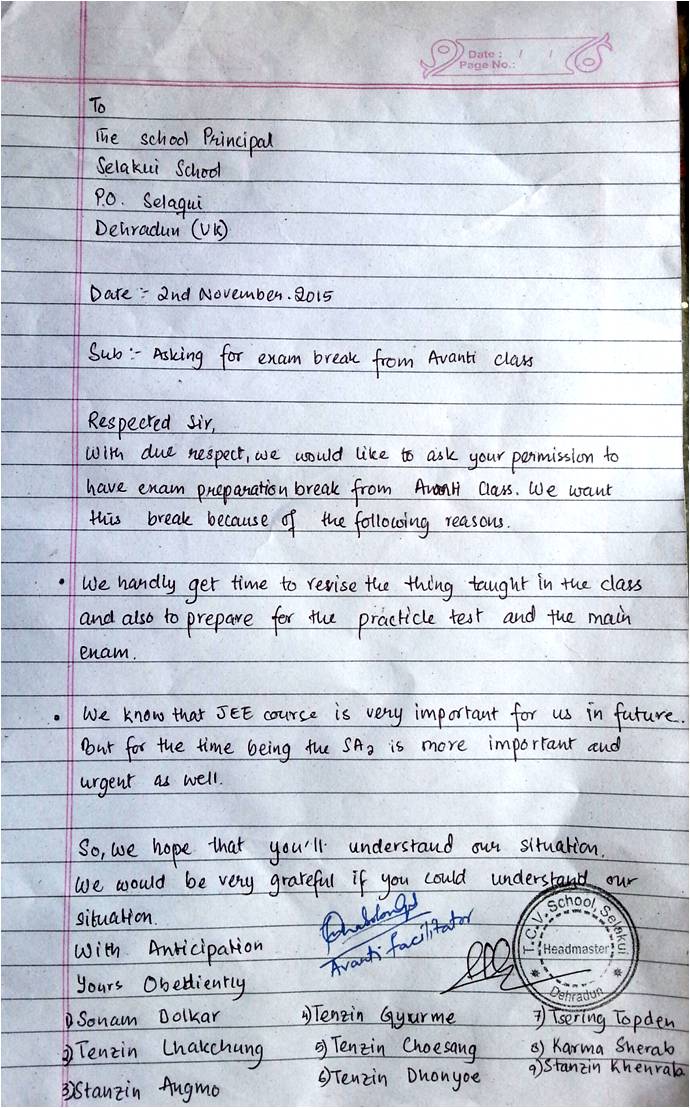 Date : / /
Page No.:
To
The school Principal
Selakui School
P.O. Selaqui
Dehradun (UK)
Date :- 2nd November. 2015
Sub :- Asking for exam break from Avanti class
Respected Sir,
With due respect, we would like to ask your permission to
have exam preparation break from Avanti Class. We want
this break because of the following reasons.
• We hardly get time to revise the thing taught in the class
and also to prepare for the practicle test and the main
exam.
• We know that JEE course is very important for us in future.
But for the time being the SA2 is more important and
urgent as well.
So, we hope that you'll understand our situation.
We would be very grateful if you could understand our
situation.
With Anticipation
Avanti facilitator
T.C.V. School, Selakui
Headmaster
Dehradun
Yours Obediently
1) Sonam Dolkar 4) Tenzin Gyurme 7) Tsering Topden
2) Tenzin Lhakchung 5) Tenzin Choesang 8) Karma Sherab
3) Stanzin Angmo 6) Tenzin Dhonyoe 9) Stanzin Khenrab